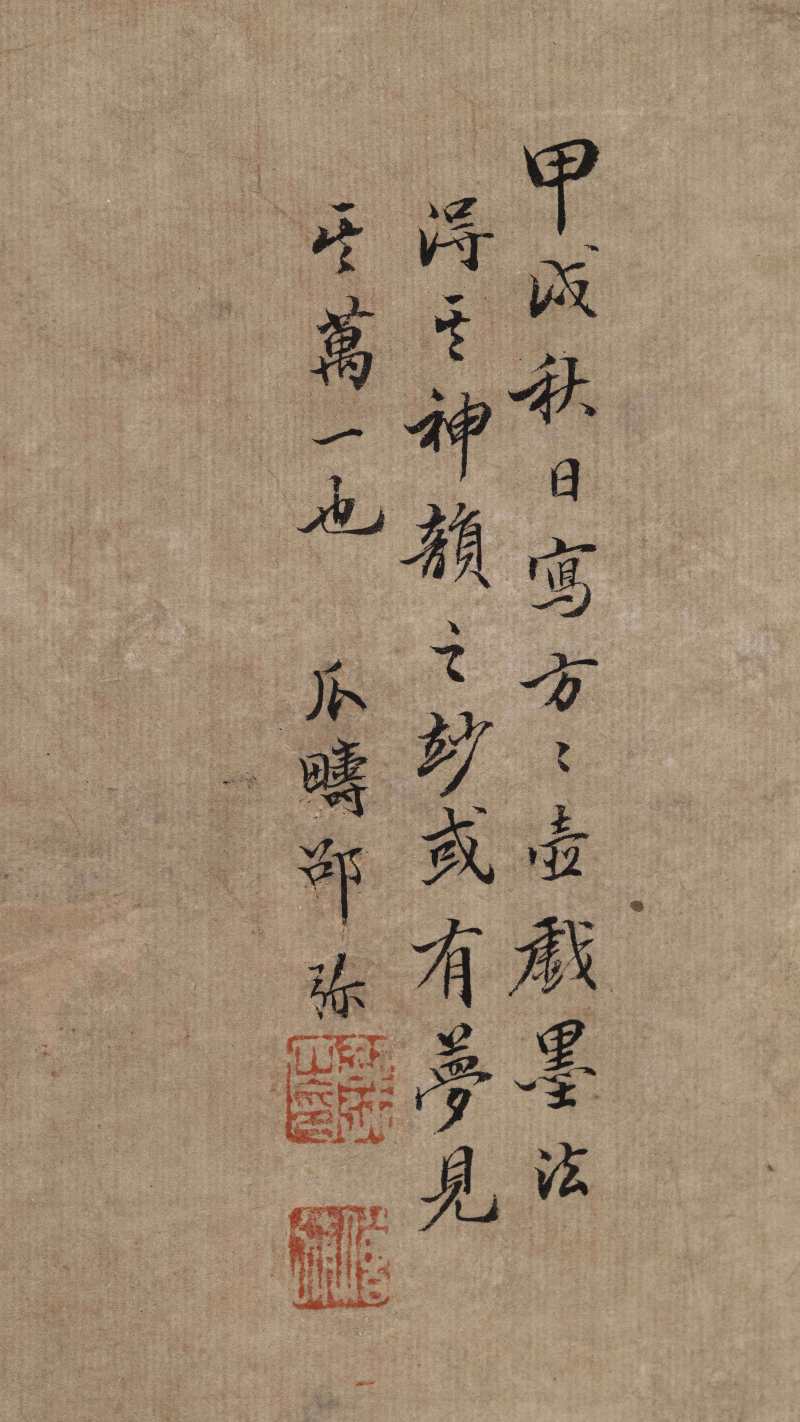 甲戌秋日寫方〻壺戲墨法
得其神韻之玅或有夢見
其萬一也 瓜疇邵弥